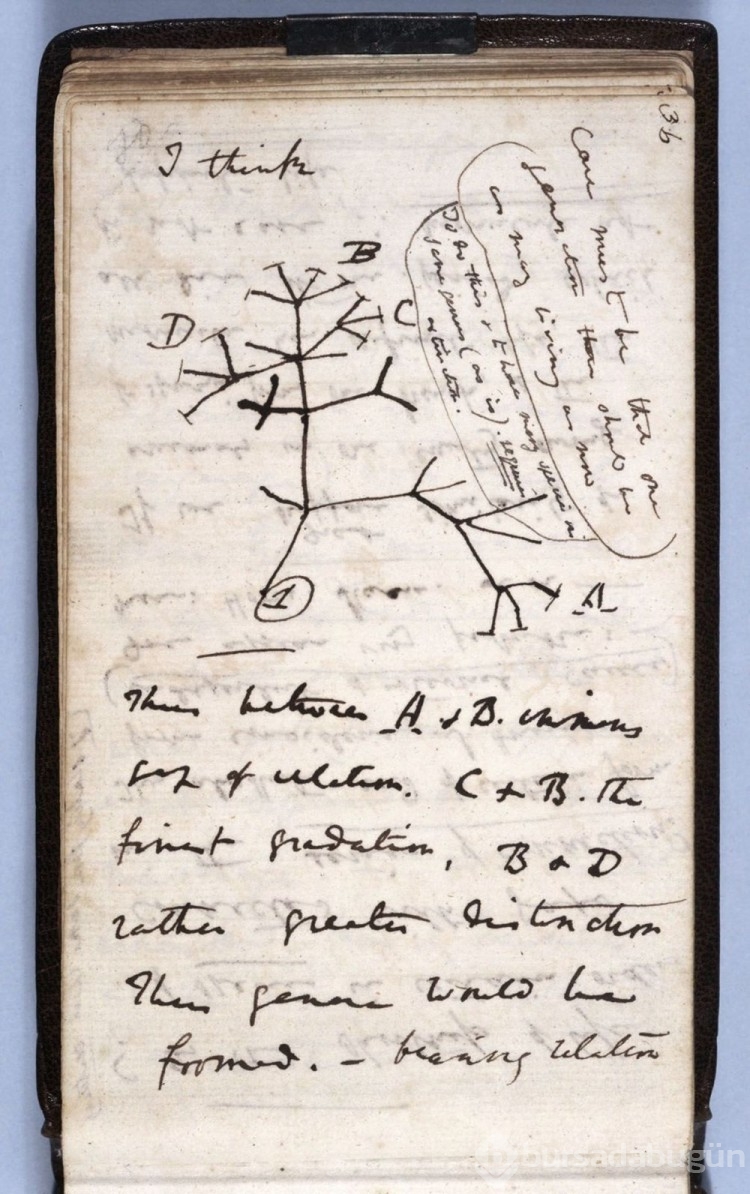 36
I think
Case must be that one
generation then should be
as many living as now
To do this & to have many species in
same genus (as is). requires
extinction.
B
C
D
A
1
Thus between A & B. immens
gap of relation. C & B. The
finest gradation, B & D
rather greater distinction
Thus genera would be
formed. — bearing relation
bursadabugün